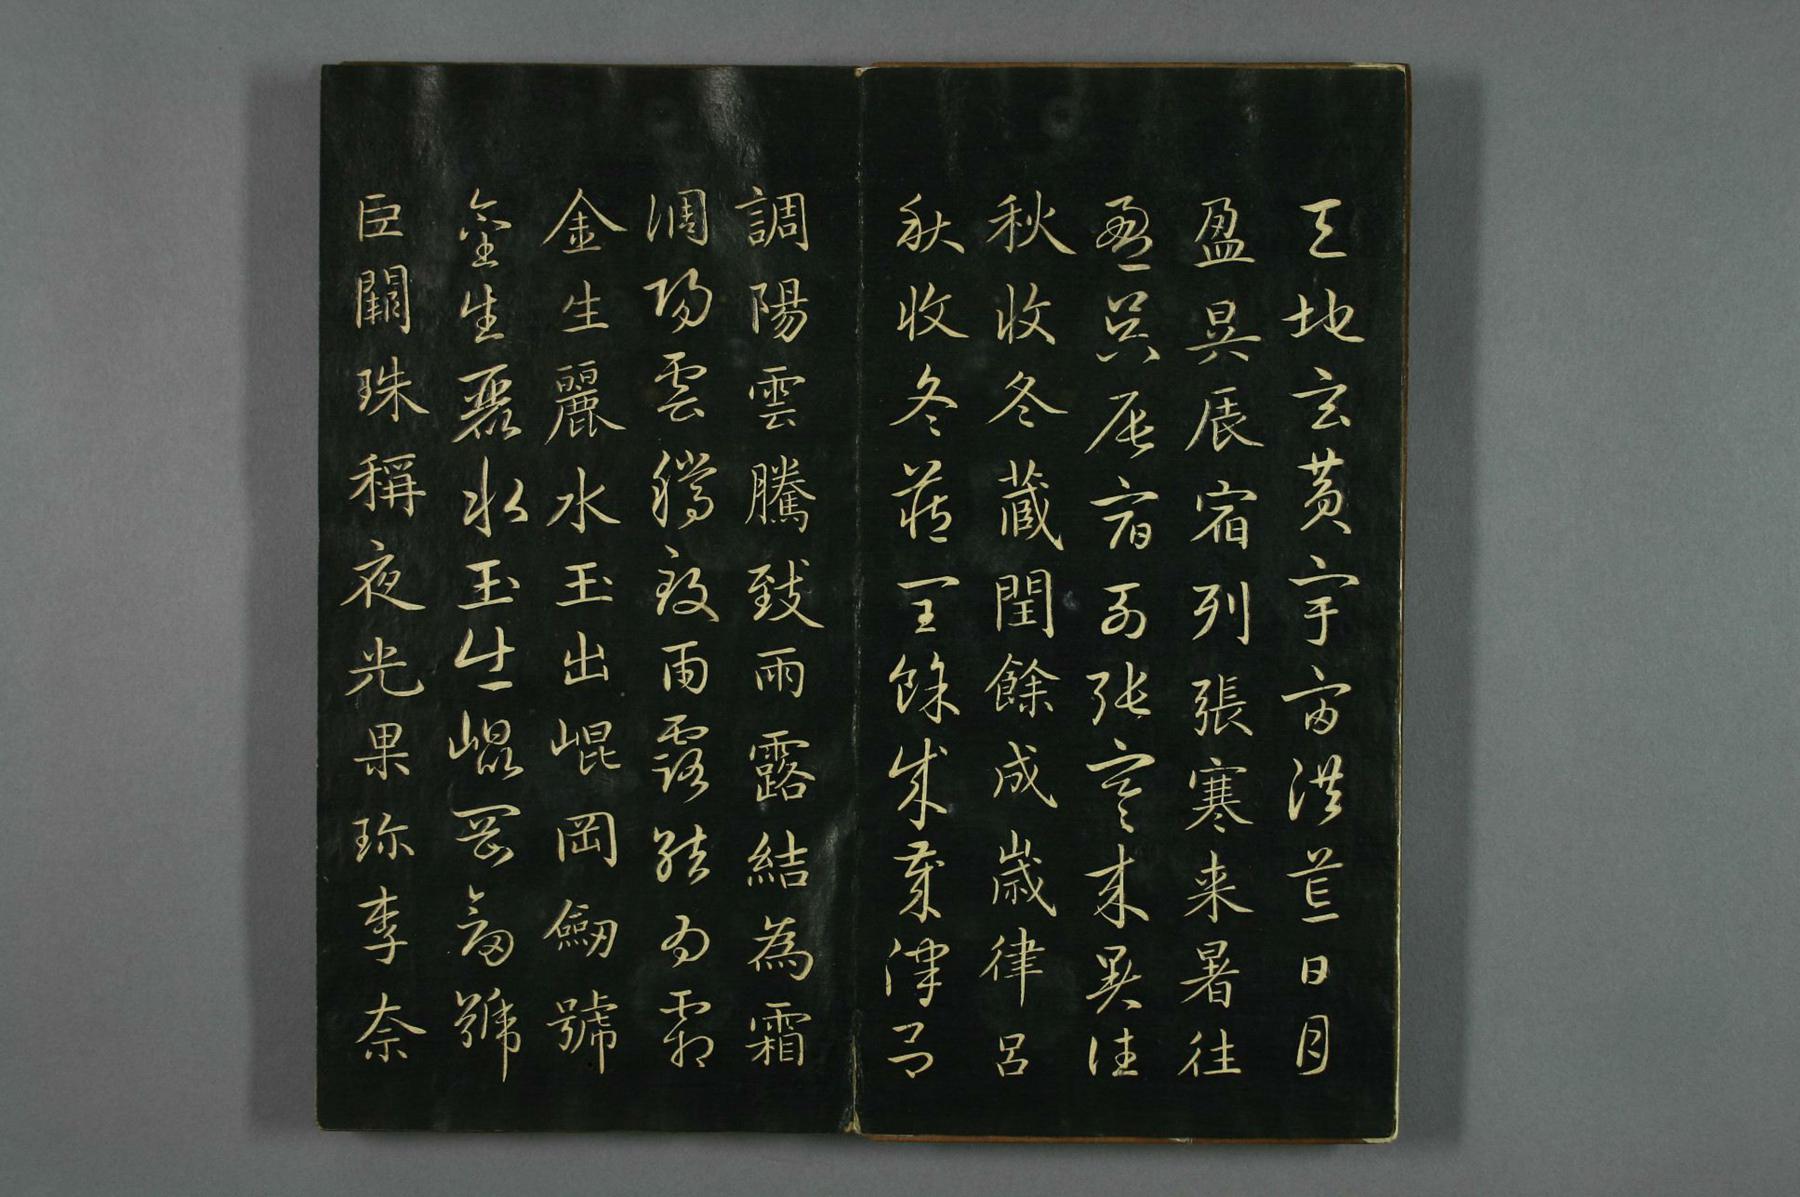 天地玄黃宇宙洪荒日月
盈昃辰宿列張寒来暑往
盈昃辰宿列張寒来暑往
秋收冬蔵閏餘成歳律呂
秋收冬蔵閏餘成歳律呂
調陽雲騰致雨露結為霜
調陽雲騰致雨露結為霜
金生麗水玉出崐岡劒號
金生麗水玉出崐岡劒號
巨闕珠稱夜光果珎李奈